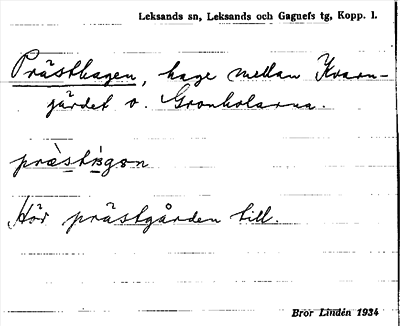 Leksands sn, Leksands och Gagnefs tg, Kopp. l.
Prästhagen, hage mellan Kvarn-
järdet o. Gronkolarna.
Hör prästgården till.
Bror Lindén 1934